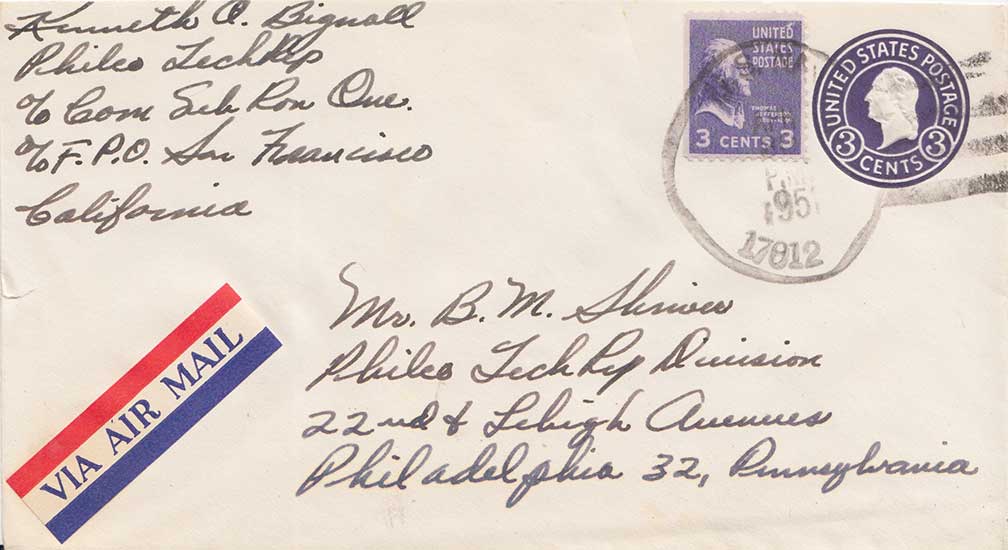 Kenneth O. Bignall
Philco TechRep
c/o Com Sub Ron One.
c/o F.P.O. San Francisco
California
UNITED
STATES
POSTAGE
THOMAS
JEFFERSON
3 CENTS 3
UNITED STATES POSTAGE
3 CENTS 3
195
17012
VIA AIR MAIL
Mr. B. M. Shriver
Philco TechRep Division
22nd & Lehigh Avenues
Philadelphia 32, Pennsylvania